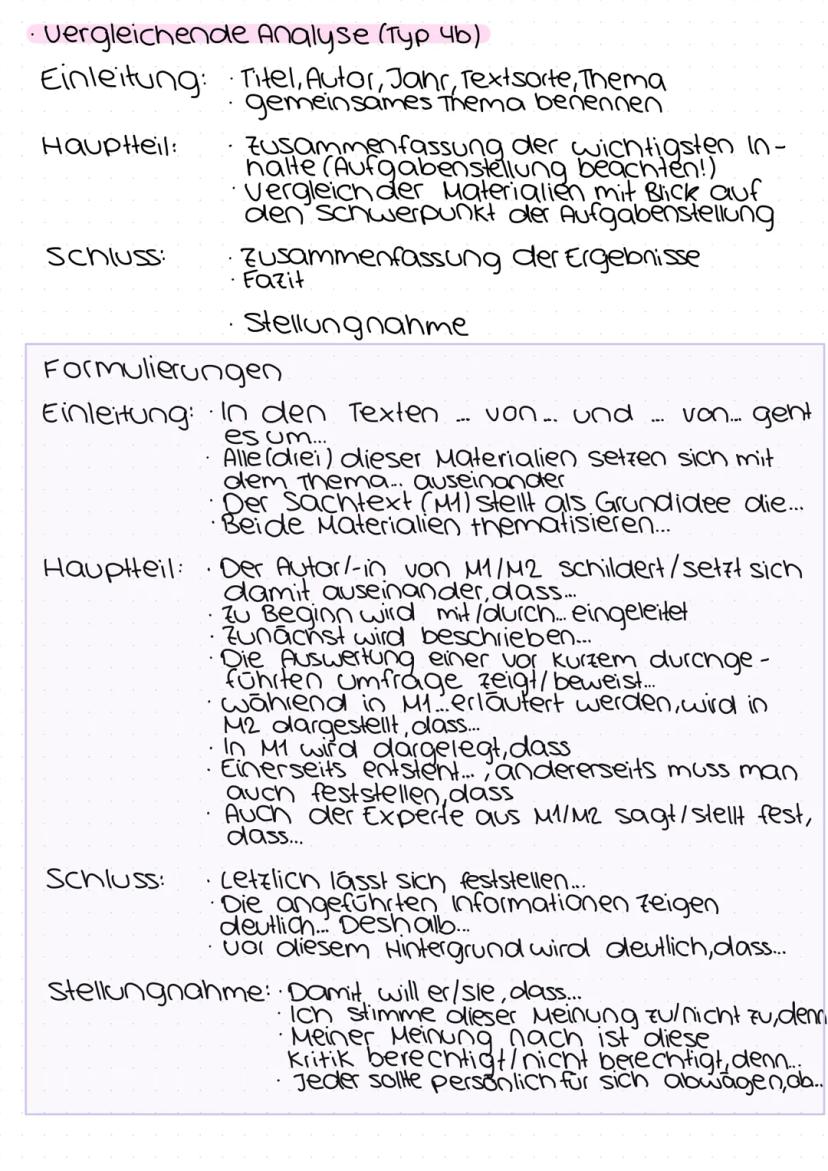 · Vergleichende Analyse (Typ 4b)
Einleitung: · Titel, Autor, Jahr, Textsorte, Thema
· gemeinsames Thema benennen
Hauptteil: · Zusammenfassung der wichtigsten In-
halte (Aufgabenstellung beachten!)
· Vergleich der Materialien mit Blick auf
den Schwerpunkt der Aufgabenstellung
Schluss: · Zusammenfassung der Ergebnisse
· Fazit
· Stellungnahme
Formulierungen
Einleitung: · In den Texten ... von ... und ... von... geht
es um...
· Alle (drei) dieser Materialien setzen sich mit
dem Thema... auseinander
· Der Sachtext (M1) stellt als Grundidee die...
· Beide Materialien thematisieren...
Hauptteil: · Der Autor/-in von M1/M2 schildert/setzt sich
damit auseinander, dass...
· Zu Beginn wird mit/durch... eingeleitet
· Zunächst wird beschrieben...
· Die Auswertung einer vor kurzem durchge-
führten Umfrage zeigt/beweist...
· Während in M1...erläutert werden, wird in
M2 dargestellt, dass...
· In M1 wird dargelegt, dass
· Einerseits entsteht..., andererseits muss man
auch feststellen, dass
· Auch der Experte aus M1/M2 sagt/stellt fest,
dass...
Schluss: · Letzlich lässt sich feststellen...
· Die angeführten Informationen zeigen
deutlich... Deshalb...
· Vor diesem Hintergrund wird deutlich, dass...
Stellungnahme: · Damit will er/sie, dass...
· Ich stimme dieser Meinung zu/nicht zu, denn
· Meiner Meinung nach ist diese
Kritik berechtigt/nicht berechtigt, denn...
· Jeder sollte persönlich für sich abwägen, ob...